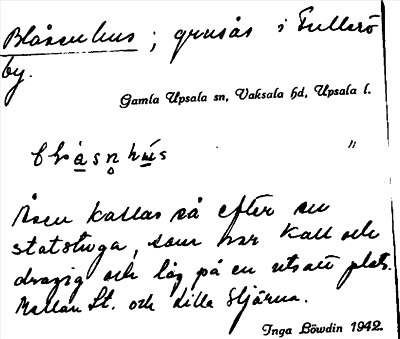 Blåsenhus ; grusås i Fullerö
by.
Gamla Upsala sn, Vaksala hd, Upsala l.
"
Åsen kallas så efter en
statstuga, som var kall och
dragig och låg på en utsatt plats.
Mellan St. och Lilla Stjärna.
Inga Löwdin 1942.